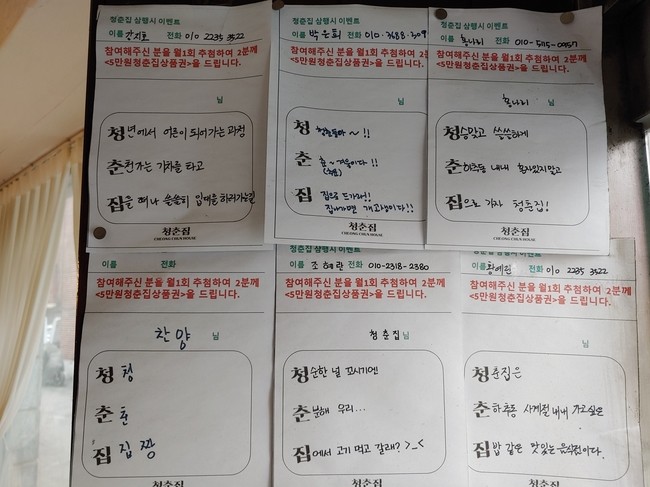 청춘집 삼행시 이벤트
이름 전화 010 2235 3522
참여해주신 분을 월1회 추첨하여 2분께
<5만원청춘집상품권>을 드립니다.
님
청년에서 어른이 되어가는 과정
춘천가는 기차를 타고
집을 떠나 쓸쓸히 입대를 하러가는길
청춘집
CHEONG CHUN HOUSE
청춘집 삼행시 이벤트
이름 박은희 전화 010-3688-309
참여해주신 분을 월1회 추첨하여 2분께
<5만원청춘집상품권>을 드립니다.
님
청
춘
집 집으로 드가라!!
집나가면 개고생이다!!
청춘집
CHEONG CHUN HOUSE
청춘집 삼행시 이벤트
이름 황나리 전화
참여해주신 분을 월1회 추첨하여 2분께
<5만원청춘집상품권>을 드립니다.
황나리 님
청승맞고 쓸쓸하게
춘하추동 내내 혼자있지말고
집으로 가자 청춘집!
청춘집
CHEONG CHUN HOUSE
이름 전화
참여해주신 분을 월1회 추첨하여 2분께
<5만원청춘집상품권>을 드립니다.
찬양 님
청 청
춘 춘
집 집 짱
청춘집
청춘집 삼행시 이벤트
이름 조혜란 전화 010-2318-2380
참여해주신 분을 월1회 추첨하여 2분께
<5만원청춘집상품권>을 드립니다.
청춘집 님
청순한 널 꼬시기엔
춘분해 우리...
집에서 고기 먹고 갈래? >_<
청춘집
청춘집 삼행시 이벤트
이름 황예진 전화 010 2235 3522
참여해주신 분을 월1회 추첨하여 2분께
<5만원청춘집상품권>을 드립니다.
님
청춘집은
춘하추동 사계절 내내 가고싶은
집밥 같은 맛있는 음식점이다.
청춘집